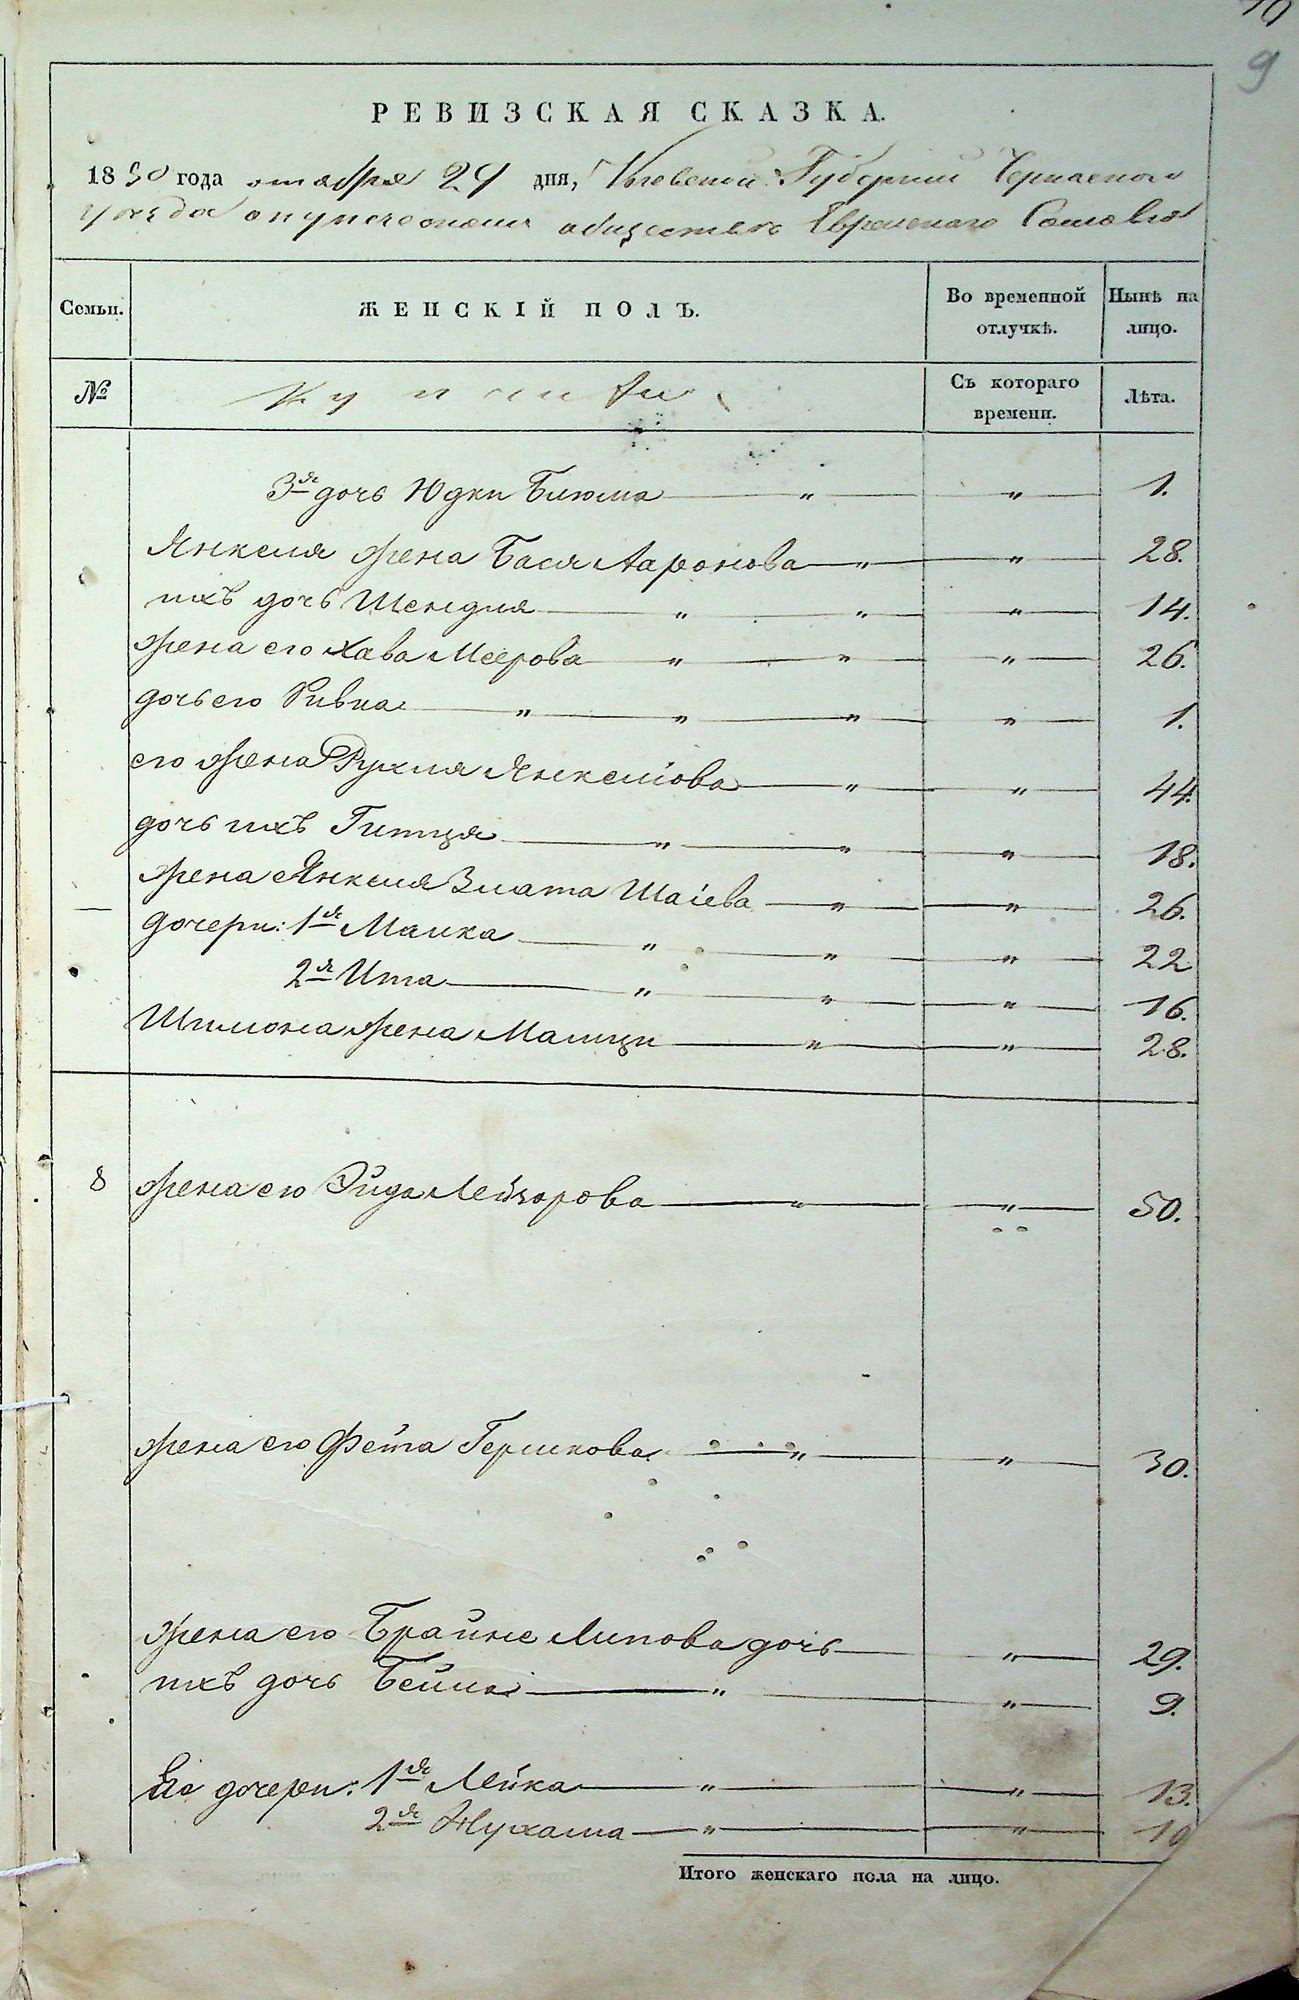 10
9
РЕВИЗСКАЯ СКАЗКА.
1850 года октября 24 дня, Киевской Губернии Черкаского
уезда о купеческом обществе Еврейскаго Сословия
Семьи.
ЖЕНСКІЙ ПОЛЪ.
Во временной отлучкѣ.
Нынѣ на лицо.
№
Съ котораго времени.
Лѣта.
3я дочь Юдки Блюма " " 1.
Янкеля жена Бася Ааронова " " 28.
ихъ дочь Шендля " " " 14.
жена его Хава Меерова " " " 26.
дочь его Ривка " " " " 1.
его жена Рухля Янкелiова " " 44.
дочь ихъ Гитля " " " 18.
жена Янкеля Злата Шаiева " " 26.
дочери: 1я Малка " " " 22
2я Ита " " " 16.
Шимона жена Малци " " 28.
8 жена его Эйдя Лейзорова " " 50.
жена его Фейга Гершкова " " 30.
жена его Брайне Липова дочь " 29.
ихъ дочь Бейла " " 9.
Ея дочери: 1я Лейка " " 13.
2я " " 10
Итого женскаго пола на лицо.